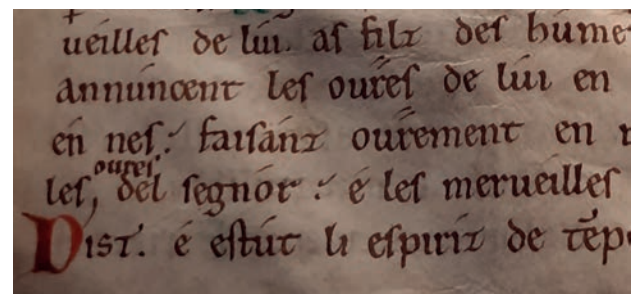 ueilleſ de lui. aſ filz deſ húme
annúncent leſ oúreſ de lúi en
eń neſ: faiſánz oúrement en
oureſ
leſ, del ſegnór : é leſ merueilleſ
Dist. é eſtút li eſpiriz de tēp